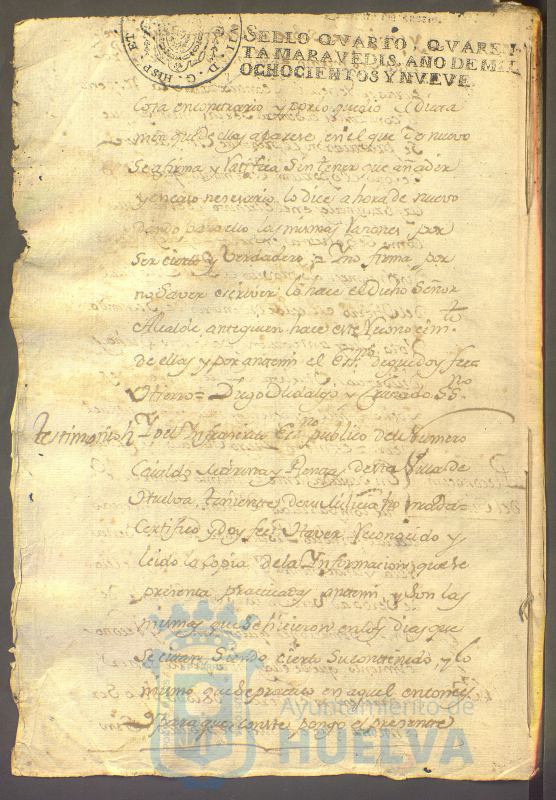 SELLO QVARTO, QVAREN
TA MARAVEDIS, AÑO DE MIL
OCHOCIENTOS Y NVEVE.
Cosa en contrario y
men que de ellas aparese en el que de nuevo
Se afirma y ratifica sin tener que añadir
y en caso nesesario lo dice ahora de nuevo
dando para ello las mismas razones por
Ser cierto y Verdadero, y no firma por
no Saver escriver lo hace el Dicho Señor
Alcalde ante quien hace este reconocim.to
de ellas y por antemi el Ess.no de que doy fee=
Utierro= Diego Hidalgo y
Testimonio Yo el Infrascrito Es.no publico del Numero
Cavildo Marina y Rentas de esta Villa de
Huelva, teniente de su Milicia
Certifico y doy fee: Haver reconocido y
leido la copia de la Informacion que se
presenta practicada antemi y son las
mismas que se hicieron en los dias que
se citan siendo cierto su contenido y lo
mismo que se practico en aquel entonces
y para que conste pongo el presente
Ayuntamiento de
HUELVA